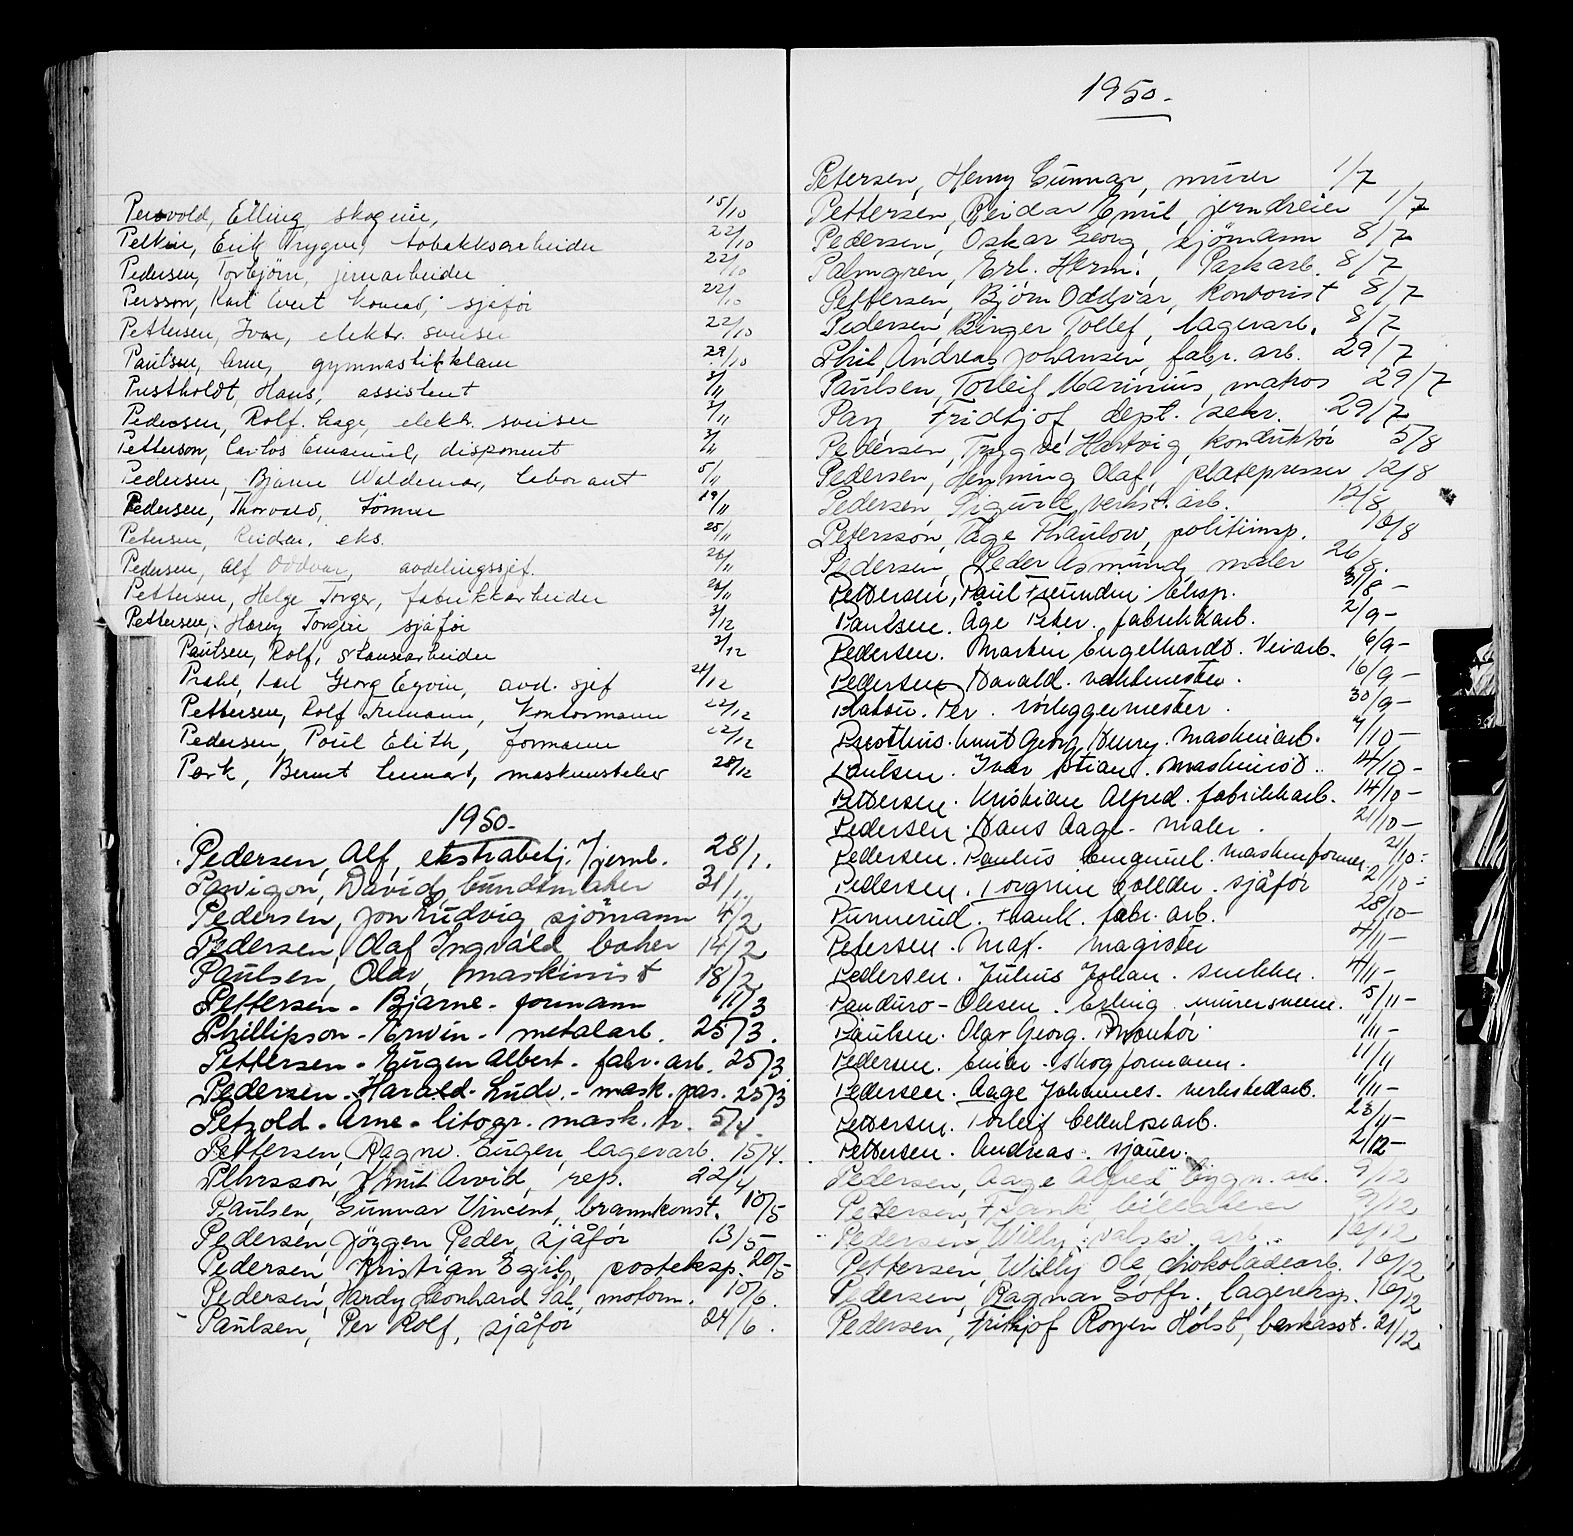 Persvold, Elling, skogeier, 15/10
Pettersen, Erik Trygve, tobakksarbeider 22/10
Pedersen, Torbjörn, jernarbeider 22/10
Persson, Karl Evert Konrad, sjåför 22/10
Pettersen, Ivar, elektr. sveiser 22/10
Paulsen, Arne, gymnastikklærer 29/10
Prestholdt, Hans, assistent 3/11
Pedersen, Rolf Aage, elektr. sveiser 3/11
Petterson, Carlos Emanuel, disponent 3/11
Pedersen, Bjarne Waldemar, laborant 5/11
Pedersen, Thorvald, tömrer 19/11
Petersen, Reidar, eks. 25/11
Pedersen, Alf Oddvar, avdelingssjef. 26/11
Pettersen, Helge Torger, fabrikkarbeider 26/11
Pettersen, Harry Torgeir sjåför 3/12
Paulsen, Rolf, stansearbeider 3/12
Prahl, Karl Georg Egvin, avd. sjef 21/12
Pettersen, Rolf Hermann, kontormann 22/12
Pedersen, Poul Elith, formann 22/12
Pærk, Bernt Lennart, maskinsteller 28/12
1950.
Pedersen, Alf, ekstrabetj. v/jernb. 28/1.
Pavigon, David, buntmaker 31/1.
Pedersen, Jon Ludvig, sjömann 4/2
Pedersen, Olaf Ingvald, baker 14/2
Paulsen, Olav, maskinist 18/2
Pettersen - Bjarne - formann 11/3
Phillipson - Erwin - metalarb. 25/3.
Pettersen - Eugen Albert - fabr. arb. 25/3
Pedersen - Harald Ludv. - mask. pas. 25/3
Petzold - Arne - litogr. mask. tr. 5/4
Pettersen, Ragnv. Eugen, lagerarb. 15/4.
Pehrsson, Knut Arvid, rep. 22/4
Paulsen, Gunnar Vincent, brannkonst. 10/5
Pedersen, Jörgen Peder, sjåför 13/5
Pedersen, Kristian Egil, posteksp. 20/5
Pedersen, Hardy Leonhard Sal, motorm. 10/6.
Paulsen, Per Rolf, sjåför 24/6.
1950.
Petersen, Henry Gunnar, murer 1/7
Pettersen, Reidar Emil, jerndreier 1/7
Pedersen, Oskar Georg, sjömann 8/7
Palmgren, Erl. Herm., Parkarb. 8/7
Pettersen, Björn Oddvar, kontorist 8/7
Pedersen, Birger Tollef, lagerarb. 8/7
Phil, Andreas Johansen, fabr. arb. 29/7
Paulsen, Torleif Marinius, matros 29/7
Pay, Fridtjof, dept. sekr. 29/7
Pedersen, Trygve Hartvig, konduktör 5/8
Pedersen, Henning Olaf, platepresser 12/8
Pedersen, Sigurd, verkst. arb. 12/8
Petersson, Åge Thaulow, politiinsp. 16/8
Pedersen, Peder Asmund, maler 26/8.
Pettersen, Paul Freundin. Eksp. 31/8 -
Paulsen. Åge Peter. fabrikkarb. 2/9 -
Pedersen. Martin Engelhardt. Veiarb. 6/9 -
Pedersen Harald. vaktmester. 16/9 -
Platou. Per. rörleggermester. 30/9 -
Presthus. Knut Georg Henry. Maskinarb. 7/10 -
Paulsen. Ivar Stian. Maskinist. 14/10 -
Pettersen. Kristian Alfred. fabrikkarb. 14/10 -
Pedersen. Hans Aage. Maler. 21/10 -
Pedersen. Paulus Emanuel. Maskinformer. 21/10 -
Pedersen. Torgrim Halldor. sjåför 21/10 -
Punnerud. Frank. fabr. arb. 28/10 -
Petersen. Max. magister 4/11 -
Pedersen. Julius Johan. snekker. 4/11 -
Panduro - Olesen. Erling. murersvenn. 5/11 -
Paulsen. Olav Georg. Montör. 11/11 -
Pedersen. Einar. skogformann. 11/11
Pedersen. Aage Johannes. verkstedarb. 11/11 -
Pettersen. Torleif Cellulosearb. 23/11 -
Pettersen. Andreas. sjauer. 2/12 -
Pedersen, Aage Alfred bygn. arb. 9/12
Pedersen, Frank, billakerer 9/12
Pedersen, Willy, valse. arb. 16/12
Pettersen, Willy Ole, sjokoladearb. 16/12
Pedersen, Ragnar Gotfr., lagereksp. 16/12
Pedersen, Frithjof Roger Holst, bankasst. 21/12